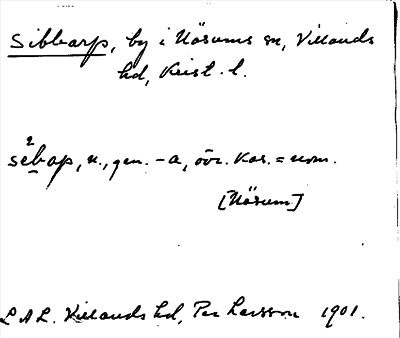 Sibbarp, by i Näsums sn, Villands
hd, Krist. l.
sèbap, n., gen. -a, övr. kas. = nom.
[Näsum]
LAL. Villands hd, Per Larsson 1901.